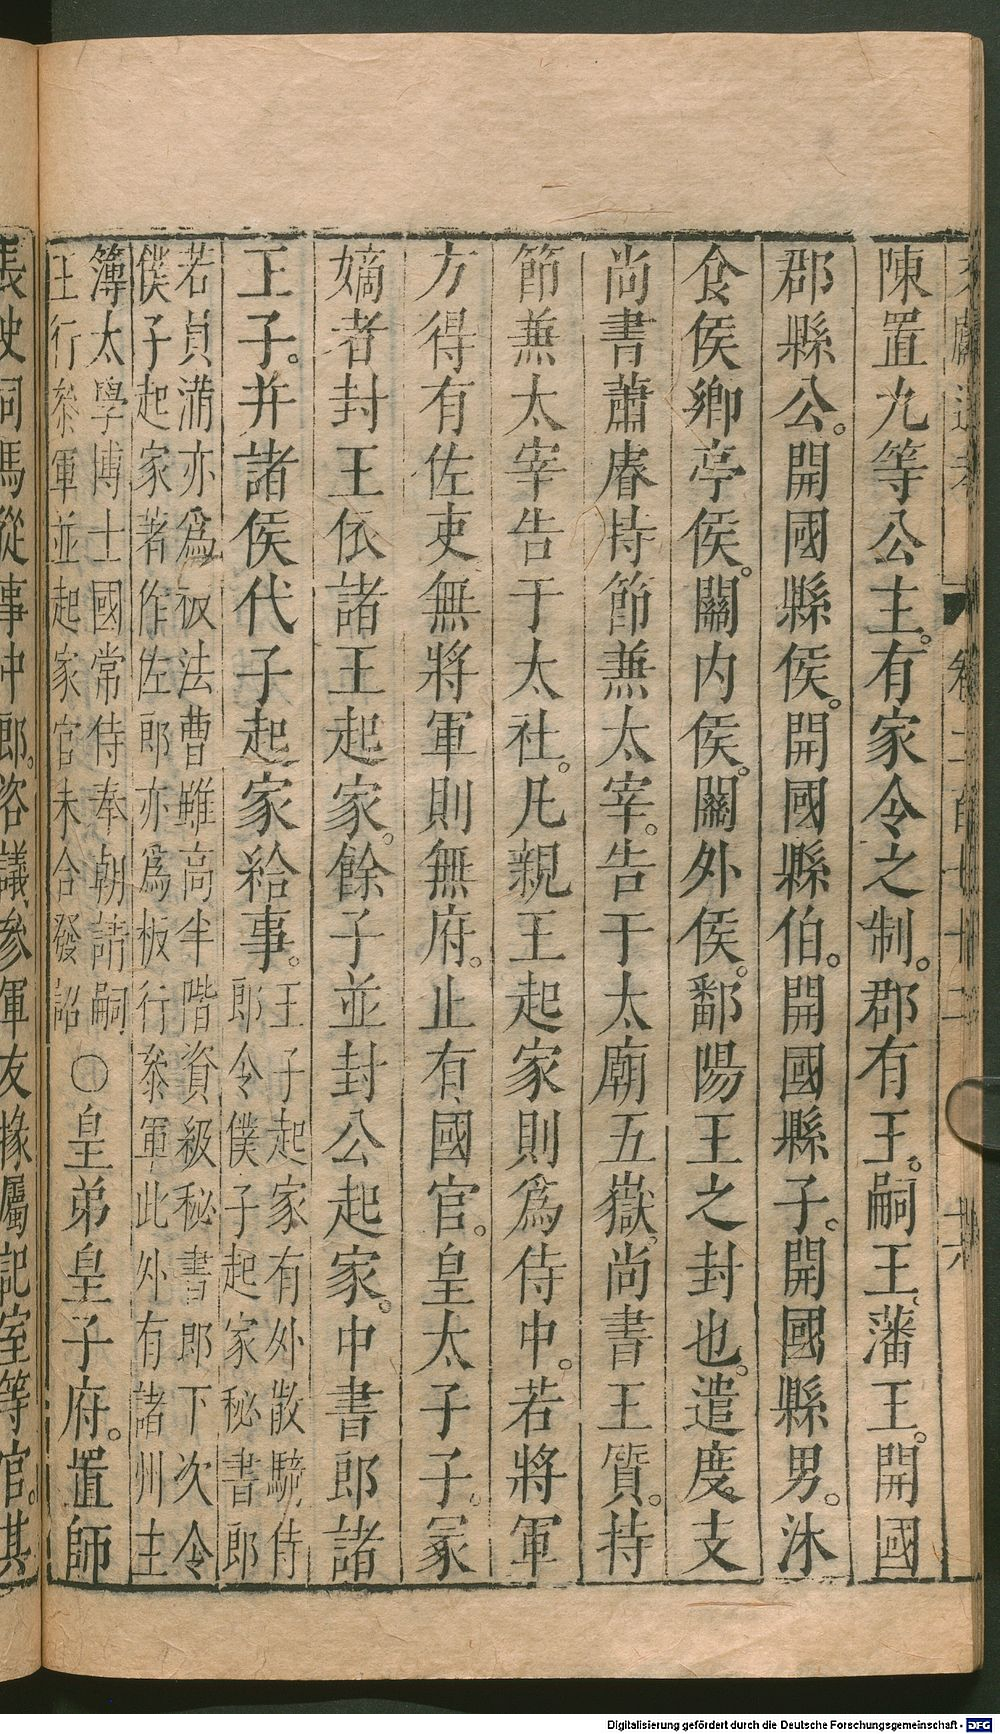 陳置九等公主。有家令之制。郡有王。嗣王、藩王。開國
郡縣公。開國縣侯。開國縣伯。開國縣子。開國縣男。沐
食侯、鄉亭侯。關內侯。關外侯。鄱陽王之封也。遣度支
尚書蕭睿持節兼太宰。告于太廟五嶽。尚書王質。持
節兼太宰告于太社。凡親王起家則爲侍中。若將軍
方得有佐吏無將軍則無府。止有國官。皇太子子。冢
嫡者封王依諸王起家。餘子並封公起家。中書郎諸
王子。并諸侯代子起家給事。
王子起家有外散騎侍
郎令僕子起家秘書郎
若員滿亦爲板法曹雖高半階資級秘書郎下次令
僕子起家著作佐郎亦爲板行叅軍此外有諸州主
簿太學博士國常侍奉朝請嗣
王行叅軍並起家官未合發詔
○皇弟皇子府。置師
長史司馬從事中郎。咨議參軍友掾屬記室等官。其
Digitalisierung gefördert durch die Deutsche Forschungsgemeinschaft - DFG